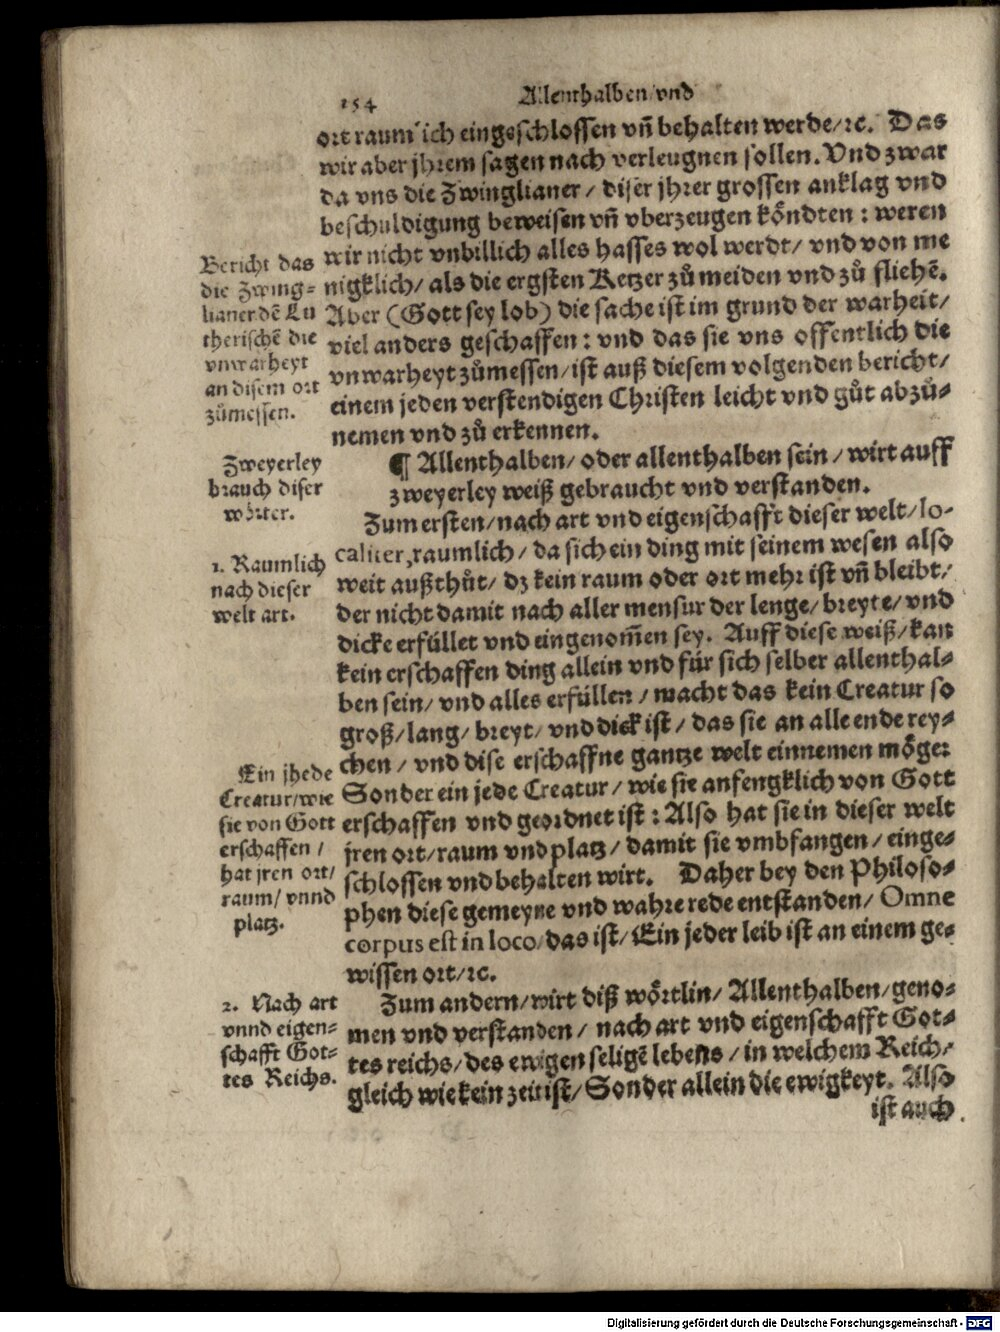 154
Allenthalben/vnd
ort raum ich eingeschlossen vñ behalten werde/ꝛc. Das
wir aber jhrem sagen nach verleugnen sollen. Vnd zwar
da vns die Zwinglianer/ diser jhrer grossen anklag vnd
beschuldigung beweisen vñ vberzeugen köndten: weren
wir nicht vnbillich alles hasses wol werdt/ vnd von me
nigklich/ als die ergsten Ketzer zů meiden vnd zů fliehẽ.
Aber (Gott sey lob) die sache ist im grund der warheit/
viel anders geschaffen: vnd das sie vns offentlich die
vnwarheyt zůmessen/ ist auß diesem volgenden bericht/
einem jeden verstendigen Christen leicht vnd gůt abzů-
nemen vnd zů erkennen.
Bericht das
die Zwing-
lianer dẽ Lu
therischẽ die
vnwarheyt
an disem ort
zůmessen.
¶ Allenthalben/ oder allenthalben sein/ wirt auff
zweyerley weiß gebraucht vnd verstanden.
Zweyerley
brauch diser
wörter.
Zum ersten/ nach art vnd eigenschafft dieser welt/ lo-
caliter, raumlich/ da sich ein ding mit seinem wesen also
weit außthůt/ dz kein raum oder ort mehr ist vñ bleibt/
der nicht damit nach aller mensur der lenge/ breyte/ vnd
dicke erfüllet vnd eingenom̃en sey. Auff diese weiß/ kan
kein erschaffen ding allein vnd für sich selber allenthal-
ben sein/ vnd alles erfüllen/ macht das kein Creatur so
groß/ lang/ breyt/ vnd dick ist/ das sie an alle ende rey-
chen/ vnd dise erschaffne gantze welt einnemen möge:
Sonder ein jede Creatur/ wie sie anfengklich von Gott
erschaffen vnd geordnet ist: Also hat sie in dieser welt
jren ort/ raum vnd platz/ damit sie vmbfangen/ einge-
schlossen vnd behalten wirt. Daher bey den Philoso-
phen diese gemeyne vnd wahre rede entstanden/ Omne
corpus est in loco/ das ist/ Ein jeder leib ist an einem ge-
wissen ort/ꝛc.
1. Raumlich
nach dieser
welt art.
Ein jhede
Creatur/wie
sie von Gott
erschaffen/
hat jren ort/
raum/ vnnd
platz.
Zum andern/ wirt diß wörtlin/ Allenthalben/ geno-
men vnd verstanden/ nach art vnd eigenschafft Got-
tes reichs/ des ewigen seligẽ lebens/ in welchem Reich/
gleich wie kein zeit ist/ Sonder allein die ewigkeyt. Also
2. Nach art
vnnd eigen-
schafft Got-
tes Reichs.
ist auch
Digitalisierung gefördert durch die Deutsche Forschungsgemeinschaft - DFG